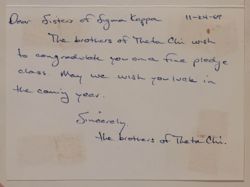 Dear Sisters of Sigma Kappa 11-24-69
The brothers of Theta Chi wish
to congradulate you on a fine pledge
class. May we wish you luck in
the coming year.
Sincerely
the brothers of Theta Chi.